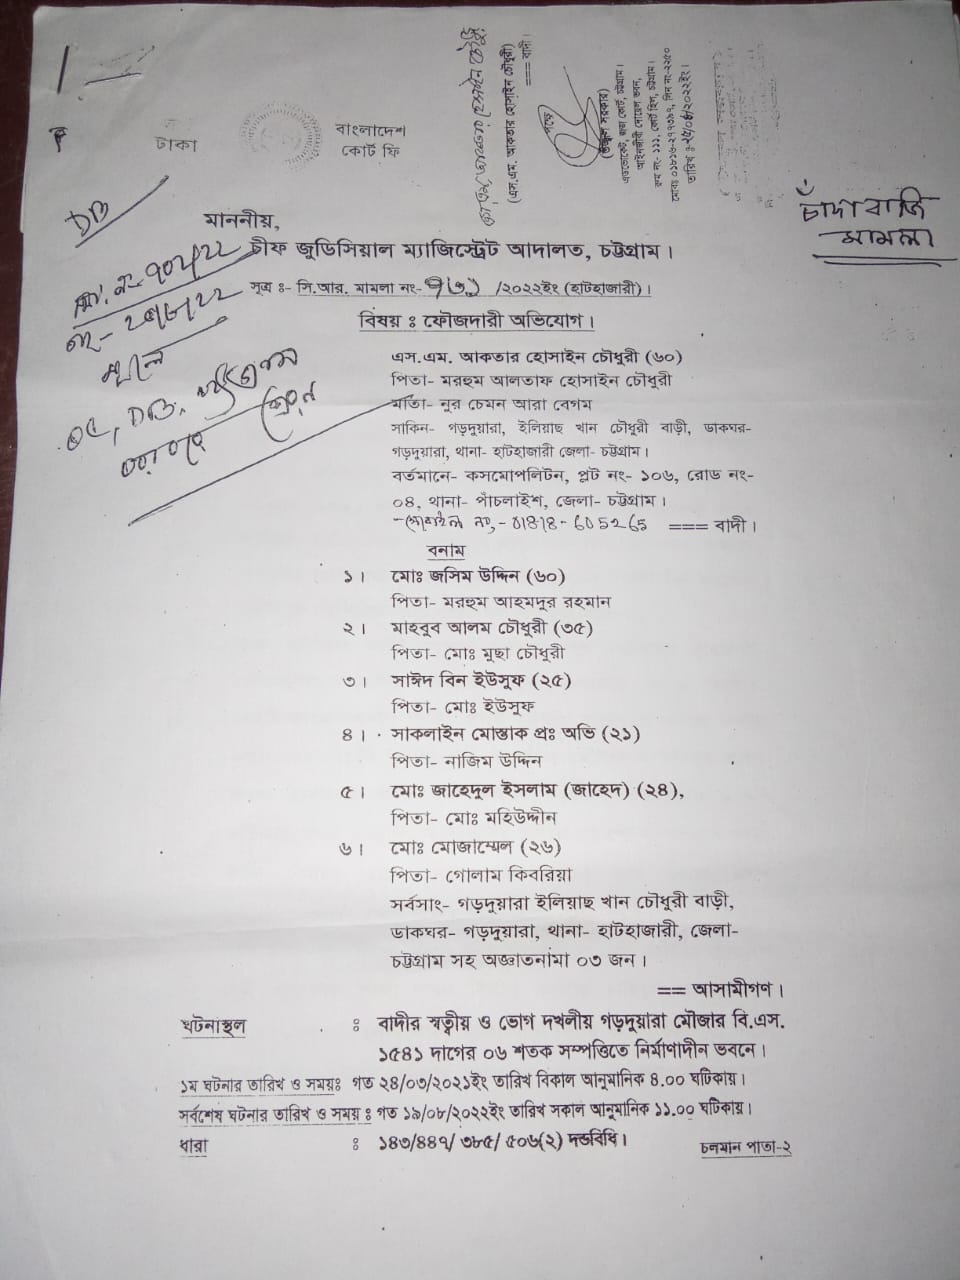 টাকা
বাংলাদেশ
কোর্ট ফি
(এস.এম. আকতার হোসাইন চৌধুরী)
=== বাদী।
এডভোকেট, জজ কোর্ট, চট্টগ্রাম।
চাঁদাবাজি
মামলা
DB
মাননীয়,
চীফ জুডিসিয়াল ম্যাজিস্ট্রেট আদালত, চট্টগ্রাম।
সূত্র ঃ- সি.আর. মামলা নং- /২০২২ইং (হাটহাজারী)।
বিষয় ঃ ফৌজদারী অভিযোগ।
এস.এম. আকতার হোসাইন চৌধুরী (৬০)
পিতা- মরহুম আলতাফ হোসাইন চৌধুরী
মাতা- নুর চেমন আরা বেগম
সাকিন- গড়দুয়ারা, ইলিয়াছ খান চৌধুরী বাড়ী, ডাকঘর-
গড়দুয়ারা, থানা- হাটহাজারী জেলা- চট্টগ্রাম।
বর্তমানে- কসমোপলিটন, প্লট নং- ১০৬, রোড নং-
০৪, থানা- পাঁচলাইশ, জেলা- চট্টগ্রাম।
-মোবাইল নং,- 01818-605265 === বাদী।
বনাম
১। মোঃ জসিম উদ্দিন (৬০)
পিতা- মরহুম আহমদুর রহমান
২। মাহবুব আলম চৌধুরী (৩৫)
পিতা- মোঃ মুছা চৌধুরী
৩। সাঈদ বিন ইউসুফ (২৫)
পিতা- মোঃ ইউসুফ
৪। সাকলাইন মোস্তাক প্রঃ অভি (২১)
পিতা- নাজিম উদ্দিন
৫। মোঃ জাহেদুল ইসলাম (জাহেদ) (২৪),
পিতা- মোঃ মহিউদ্দীন
৬। মোঃ মোজাম্মেল (২৬)
পিতা- গোলাম কিবরিয়া
সর্বসাং- গড়দুয়ারা ইলিয়াছ খান চৌধুরী বাড়ী,
ডাকঘর- গড়দুয়ারা, থানা- হাটহাজারী, জেলা-
চট্টগ্রাম সহ অজ্ঞাতনামা ০৩ জন।
== আসামীগণ।
ঘটনাস্থল ঃ বাদীর স্বত্বীয় ও ভোগ দখলীয় গড়দুয়ারা মৌজার বি.এস.
১৫৪১ দাগের ০৬ শতক সম্পত্তিতে নির্মাণাদীন ভবনে।
১ম ঘটনার তারিখ ও সময়ঃ গত ২৪/০৩/২০২১ইং তারিখ বিকাল আনুমানিক ৪.০০ ঘটিকায়।
সর্বশেষ ঘটনার তারিখ ও সময় ঃ গত ১৯/০৮/২০২২ইং তারিখ সকাল আনুমানিক ১১.০০ ঘটিকায়।
ধারা ঃ ১৪৩/৪৪৭/ ৩৮৫/ ৫০৬(২) দন্ডবিধি।
চলমান পাতা-২